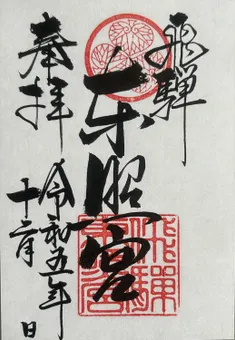 飛騨
東照宮
奉拝
令和五年
十二月 日
飛騨東照宮